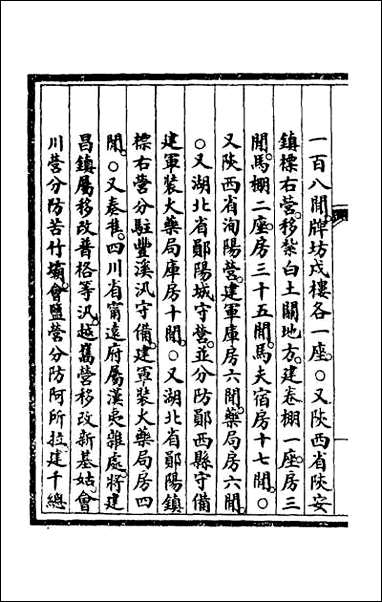 一百八閒牌坊戍樓各一座。○又陝西省陝安
鎮標右營移紮白土關地方。建卷棚一座房三
閒。馬棚二座。房三十五閒。馬夫宿房十七閒。○
又陝西省洵陽營。建軍庫房六閒。藥局房六閒。
○又湖北省鄖陽城守營。並分防鄖西縣守備
建軍裝火藥局庫房十閒。○又湖北省鄖陽鎮
標右營分駐豐溪汛守備。建軍裝火藥局房四
閒。○又奏准。四川省甯遠府屬漢夷雜處將建
昌鎮屬移改普格等汛。越巂營移改新基姑。會
川營分防苦竹壩。會鹽營分防阿所拉。建千總